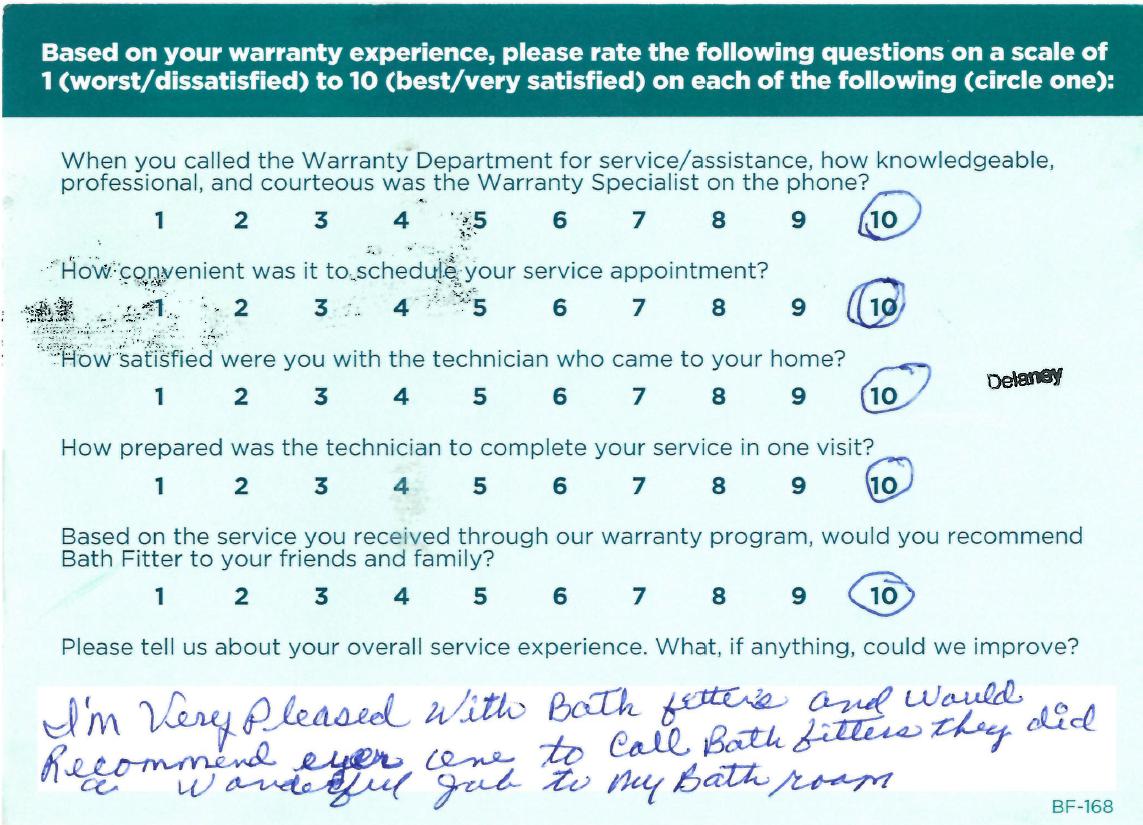 Based on your warranty experience, please rate the following questions on a scale of
1 (worst/dissatisfied) to 10 (best/very satisfied) on each of the following (circle one):
When you called the Warranty Department for service/assistance, how knowledgeable,
professional, and courteous was the Warranty Specialist on the phone?
1 2 3 4 5 6 7 8 9 10
How convenient was it to schedule your service appointment?
1 2 3 4 5 6 7 8 9 10
How satisfied were you with the technician who came to your home?
Delaney
1 2 3 4 5 6 7 8 9 10
How prepared was the technician to complete your service in one visit?
1 2 3 4 5 6 7 8 9 10
Based on the service you received through our warranty program, would you recommend
Bath Fitter to your friends and family?
1 2 3 4 5 6 7 8 9 10
Please tell us about your overall service experience. What, if anything, could we improve?
I'm Very Pleased With Bath fitters and Would
Recommend ever one to Call Bath fitters they did
a Wonderful Job to My Bath room
BF-168